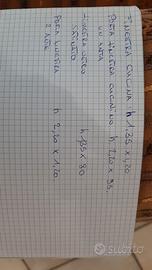 FINESTRA CUCINA h 1.35 x 1,20
PORTA FINESTRA CUCINA h 2.20 x 95
UN ANTA
FINESTRA BAGNO h 135 x 80
SATINATO
PORTA FINESTRA h 2,20 x 1.20
2 ANTE
subito